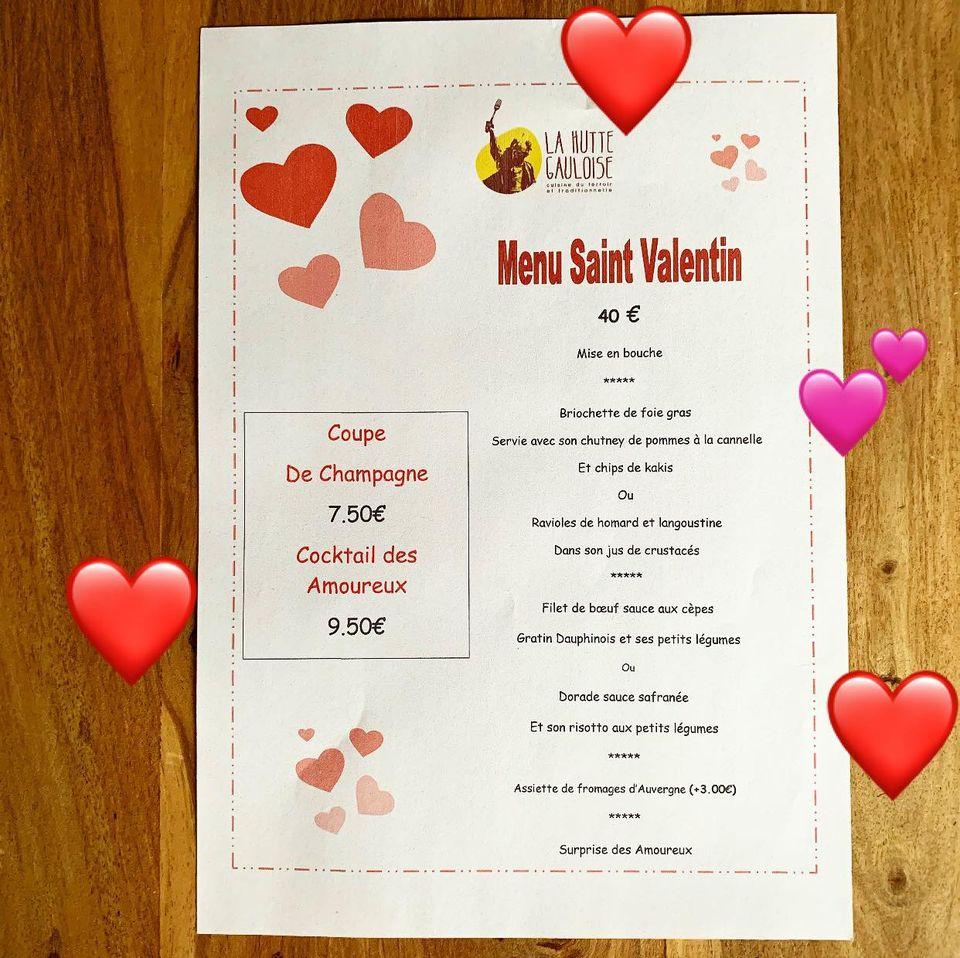 LA HUTTE
GAULOISE
cuisine du terroir
et traditionnelle
Menu Saint Valentin
40 €
Mise en bouche
*****
Briochette de foie gras
Servie avec son chutney de pommes à la cannelle
Et chips de kakis
Ou
Ravioles de homard et langoustine
Dans son jus de crustacés
*****
Filet de bœuf sauce aux cèpes
Gratin Dauphinois et ses petits légumes
Ou
Dorade sauce safranée
Et son risotto aux petits légumes
*****
Assiette de fromages d'Auvergne (+3.00€)
*****
Surprise des Amoureux
Coupe
De Champagne
7.50€
Cocktail des
Amoureux
9.50€